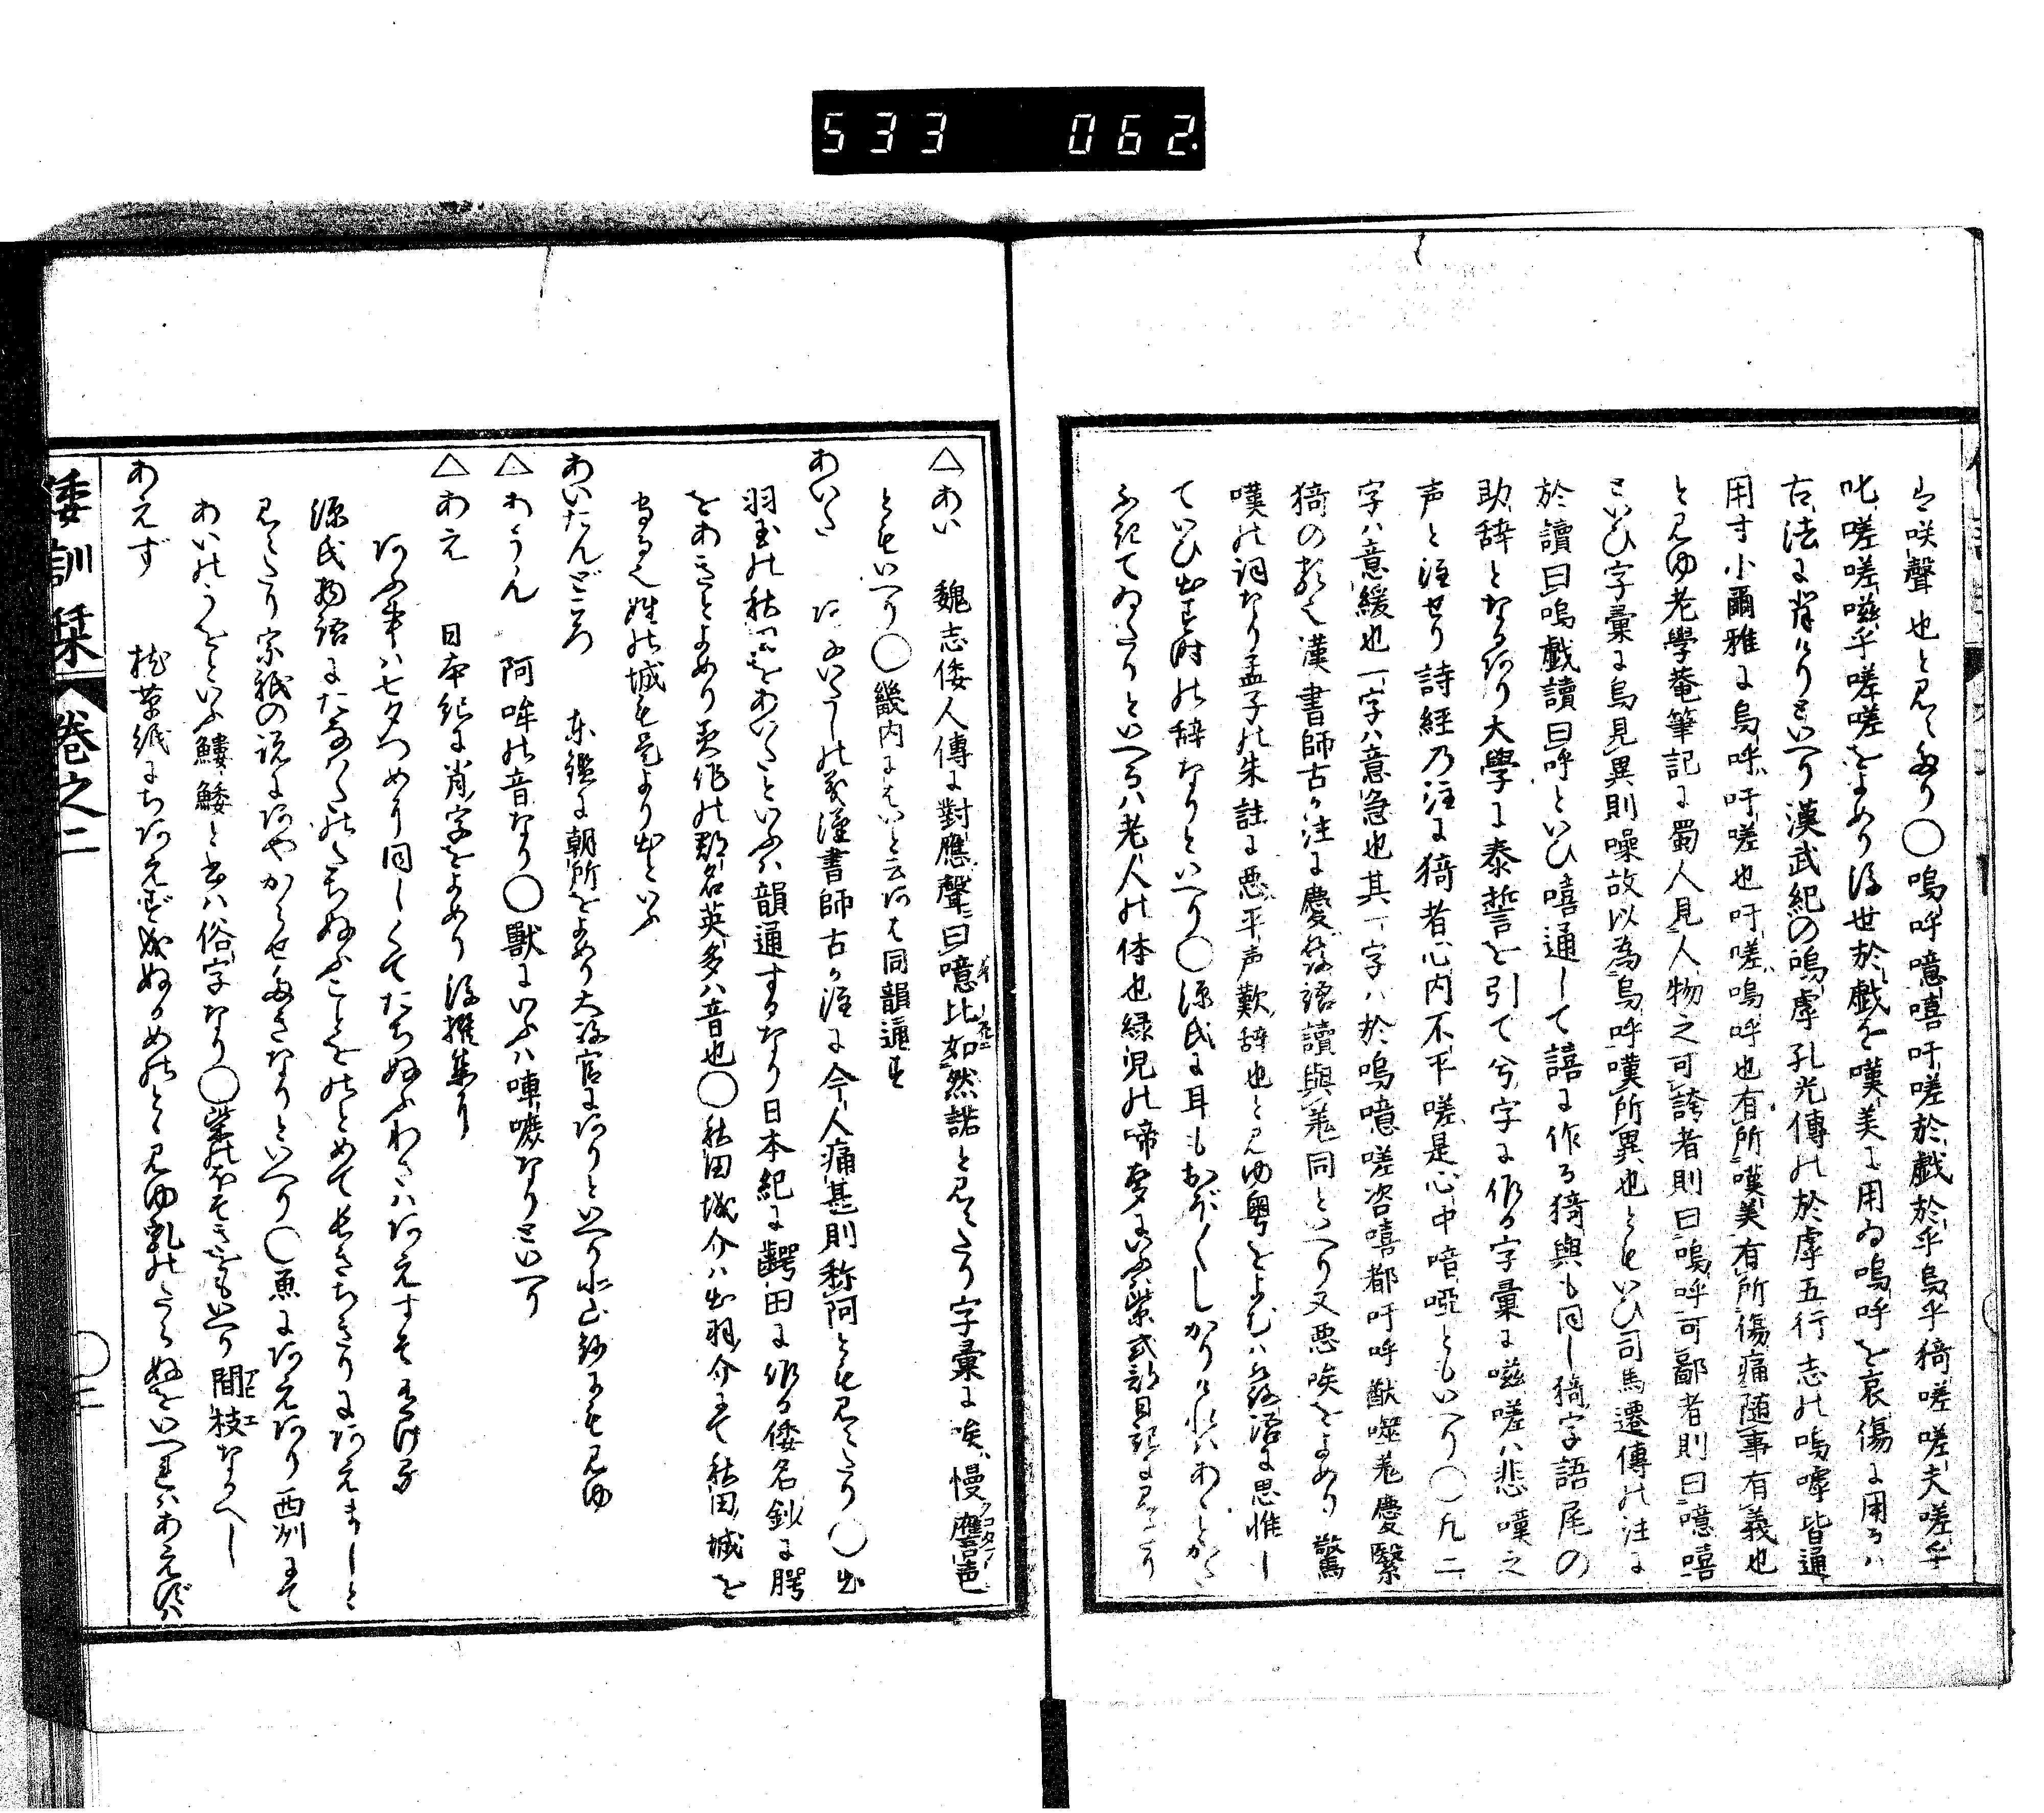 533 062.
は咲聲也と見えたり○嗚呼噫嘻吁嗟於戯於乎烏乎猗嗟嗟夫嗟乎
叱嗟嗟嗞乎嗟嗟をよめり後世於戯を嘆美に用ゐ嗚呼を哀傷に用るハ
古法に背けりといへり漢武紀の嗚虖孔光傳の於虖五行志の嗚嘑皆通
用す小爾雅に烏呼吁嗟也吁嗟嗚呼也有所嘆美有所傷痛随事有義也
と見ゆ老學菴筆記に蜀人見人物之可誇者則曰嗚呼可鄙者則曰噫嘻
といひ字彙に烏見異則噪故以為烏呼嘆所異也ともいひ司馬遷傳の注に
於讀曰嗚戯讀曰呼といひ嘻通して譆に作る猗與も同し猗字語尾の
助辞となるあり大學に泰誓を引て兮字に作る字彙に嗞嗟ハ悲嘆之
声と注せり詩経乃注に猗者心内不平嗟是心中喑啞ともいへり○凡二
字ハ意緩也一字ハ意急也其一字ハ於嗚噫嗟咨嘻都吁呼猷噬羌慶繄
猗の類也漢書師古か注に慶發語讀與羌同といへり又悪唉をよめり驚
嘆の詞なり孟子の朱註に悪平声歎辞也と見ゆ粤をよむハ發語に思惟し
ていひ出す時の辞なりといへり○源氏に耳もおぼ〱しかりけれハあゝとかた
ふきてゐたりといへるハ老人の体也緑児の啼聲にいふハ紫式部日記に見えたり
△あい 魏志倭人傳に對應聲曰噫比如然諾と見えたり字彙に唉慢譍也
ともいへり○畿内にはいと云あは同韻通す
あいた あないたしの義漢書師古か注に今人痛甚則称阿とも見えたり○出
羽国の秋田をあいたといふハ韻通するなり日本紀に齶田に作る倭名鈔に腭
をあきとよめり美作の郡名英多ハ音也○秋田城介ハ出羽介にて秋田城を
守る也姓の城も是より出といふ
あいたんどころ 東鑑に朝所をよめり太政官にありといへり北山鈔にも見ゆ
△あうん 阿吽の音なり○獸にいふハ㖠𠿒なりといへり
△あえ 日本紀に肖字をよめり後撰集に
あふ事ハ七夕つめに同しくてたちぬふわさハあえすそ有ける
源氏物語にたなはたのたちぬふことをのとめて長きちきりにあえましと
見えたり宗祇の説にあやからせたきなりといへり○魚にあえあり西州にて
あいのうをといふ鱫鯘と書ハ俗字なり○梁のほそきをもいへり間枝なるへし
あえず 枕草紙にちあえず成ぬるめのとゝ見ゆ乳のたらぬをいへれハあえずハ
倭訓栞 巻之二 ○二